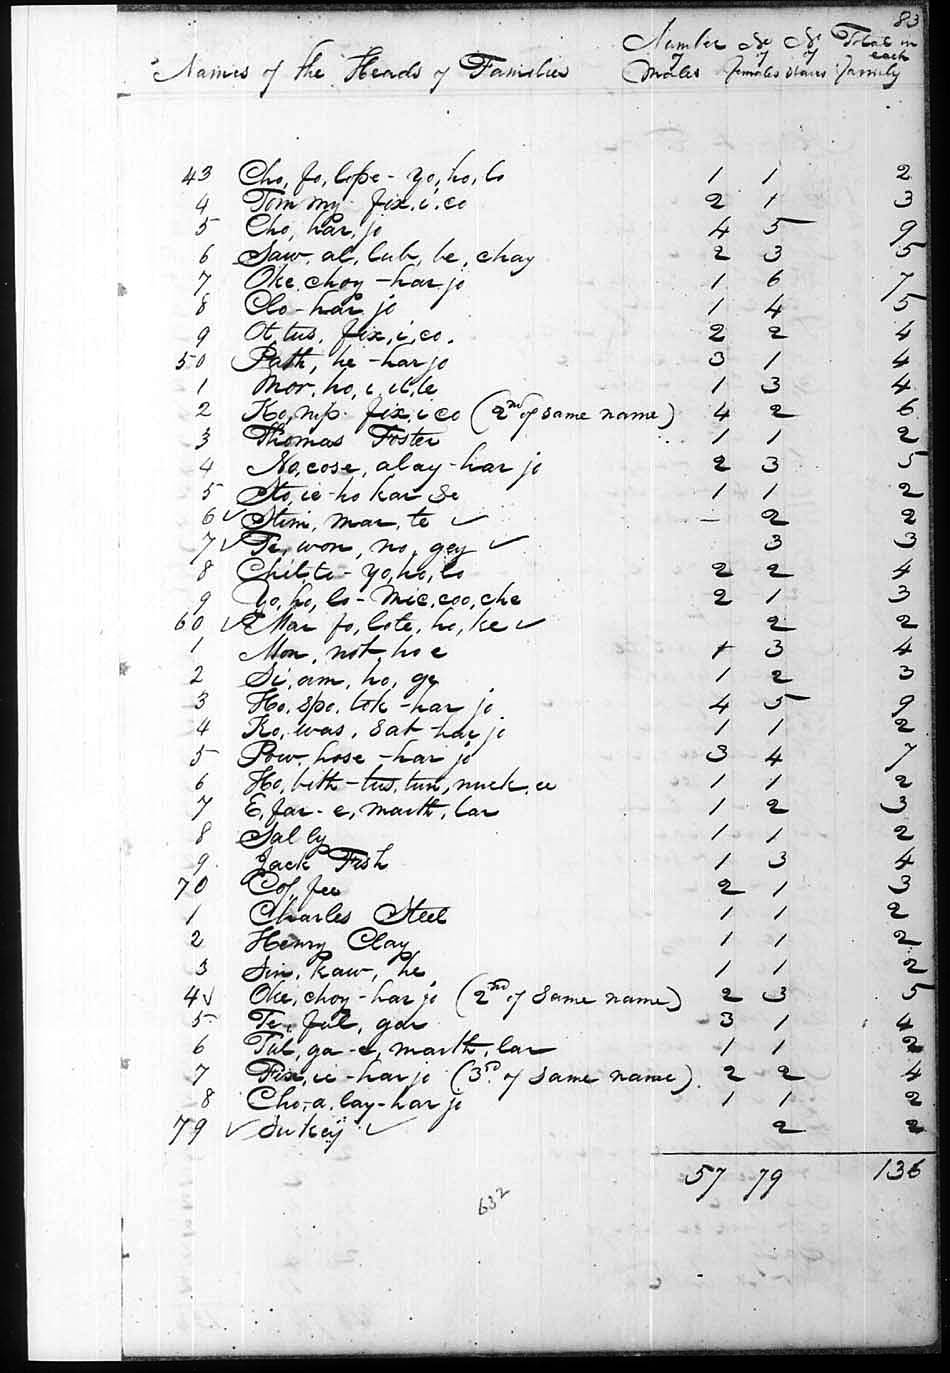 83
Names of the Heads of Families Number of Males No of females No of slaves Total in each family
43 Cho, fo, lope - yo, ho, lo 1 1 2
4 Tom my fix, i, co 2 1 3
5 Cho, har, jo 4 5 9
6 Saw, al, lub, be, chay 2 3 5
7 Oke, choy - har jo 1 6 7
8 Clo - har jo 1 4 5
9 Ot, tus, fix, i, co. 2 2 4
50 Path, he - har jo 3 1 4
1 Mor, ho, i, 1 3 4
2 Ko, nip fix, i co (2nd of same name) 4 2 6
3 Thomas Foster 1 1 2
4 No, cose, alay - har jo 2 3 5
5 Sto, ie - ho kar se 1 1 2
6 ✓ Stim, mar, te ✓ - 2 2
7 ✓ Ti, won, no, gey ✓ 3 3
8 Chil, te - yo, ho, lo 2 2 4
9 Yo, ho, lo - Mic, coo, che 2 1 3
60 ✓ Mar fo, lote, ho, ke ✓ 2 2
1 Mon, not, ho e 1 3 4
2 Si, am, ho, ge 1 2 3
3 Ho, spo, tok - har jo 4 5 9
4 Ko, was, sat - har jo 1 1 2
5 Pow, hose - har jo 3 4 7
6 Ho, bith - tus, tun, nuck, ee 1 1 2
7 E, far - e, marth, lar 1 2 3
8 Sal ly 1 1 2
9 Jack Fish 1 3 4
70 Cof, fee 2 1 3
1 Charles Steel 1 1 2
2 Henry Clay 1 1 2
3 Sin, kaw, he 1 1 2
4 ✓ Oke, choy - har jo (2nd of same name) 2 3 5
5 Te, ful, gar 3 1 4
6 Tul, ga - e, marth, lar 1 1 2
7 Fix, ie - har jo (3rd of same name) 2 2 4
8 Cho, a, lay - har jo 1 1 2
79 ✓ Su key ✓ 2 2
57 79 136
632